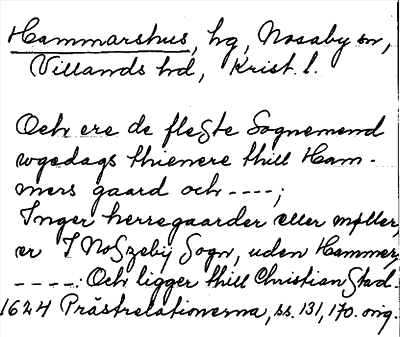 Hammarshus, hg, Nosaby sn,
Villands hd, Krist. l.
Och ere de fleste Sognemend
wgedags thienere thill Ham-
mers gaard och ----;
Inger herregaarder eller møller,
er I NoSzebÿ Sogn, uden Hammer,
----: Och ligger thill Christian Stad.
1624 Prästrelationerna, ss. 131, 170. orig.